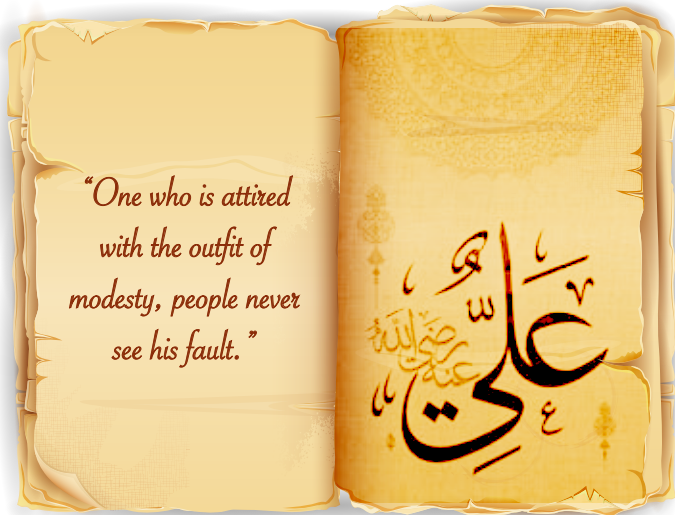 “One who is attired
with the outfit of
modesty, people never
see his fault.”
عَلِيّ
رضي الله
عنه
ع